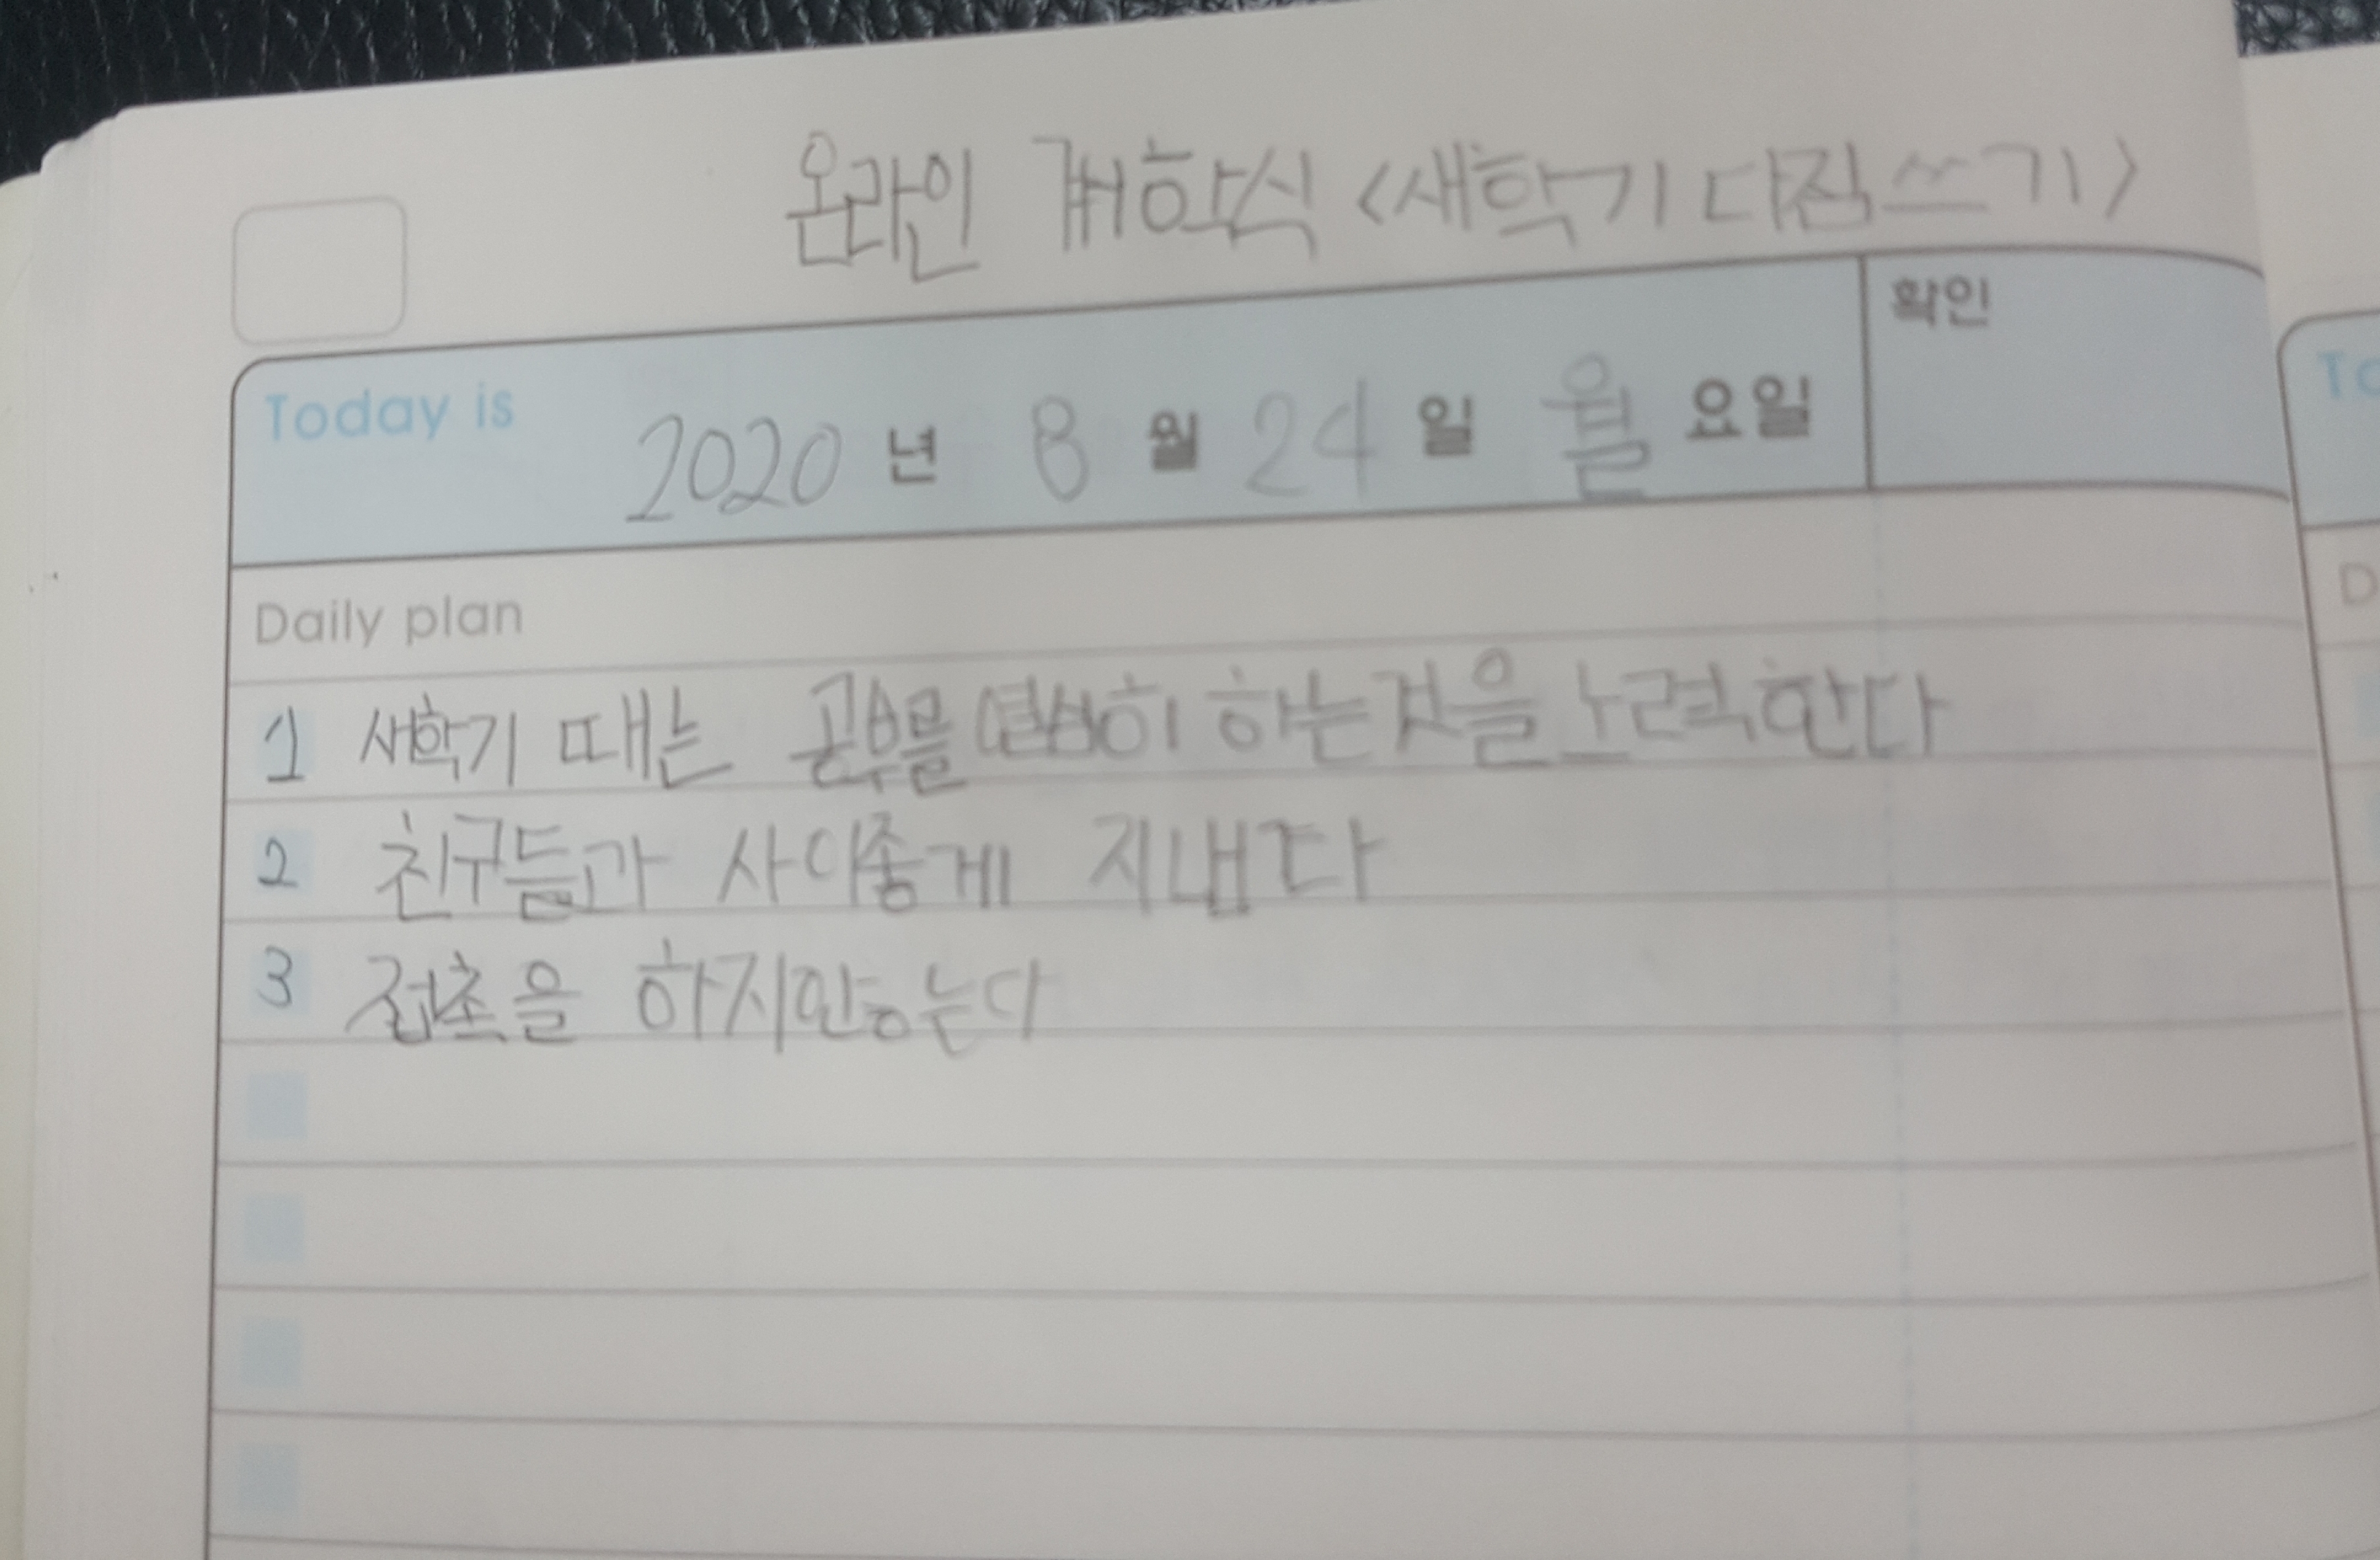 온라인 개학식 <새학기 다짐쓰기>
확인
Today is 2020 년 8 월 24 일 월 요일
To
Daily plan
D
1 새학기 때는 공부를 열심히 하는것을 노력한다
2 친구들과 사이좋게 지낸다
3 접촉을 하지안는다